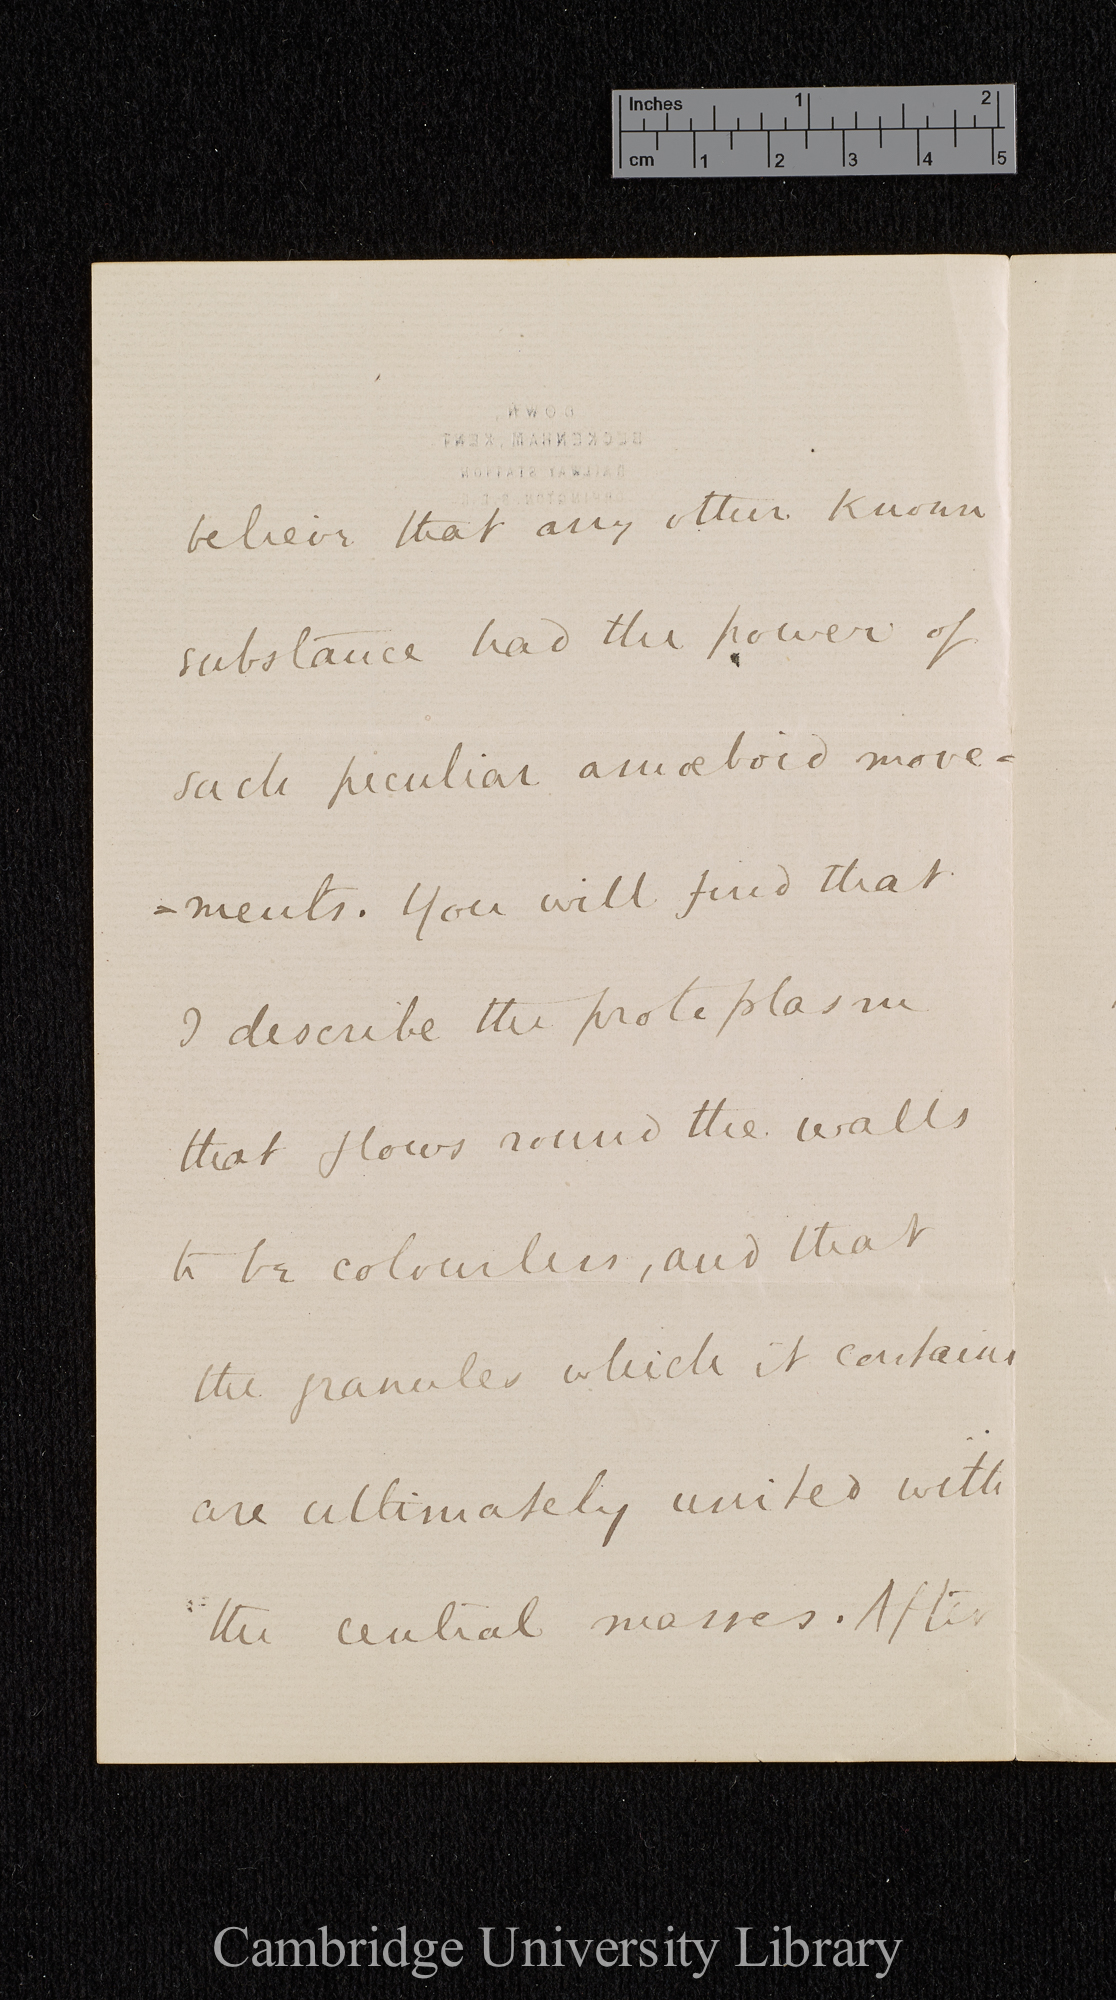 Inches 1 2
cm 1 2 3 4 5
DOWN,
BECKENHAM, KENT.
RAILWAY STATION
ORPINGTON. S.E.R.
believe that any other known
substance had the power of
such peculiar amœboid move=
=ments. You will find that
I describe the protoplasm
that flows round the walls
to be colourless, and that
the granules which it contains
are ultimately united with
the central masses. After
Cambridge University Library